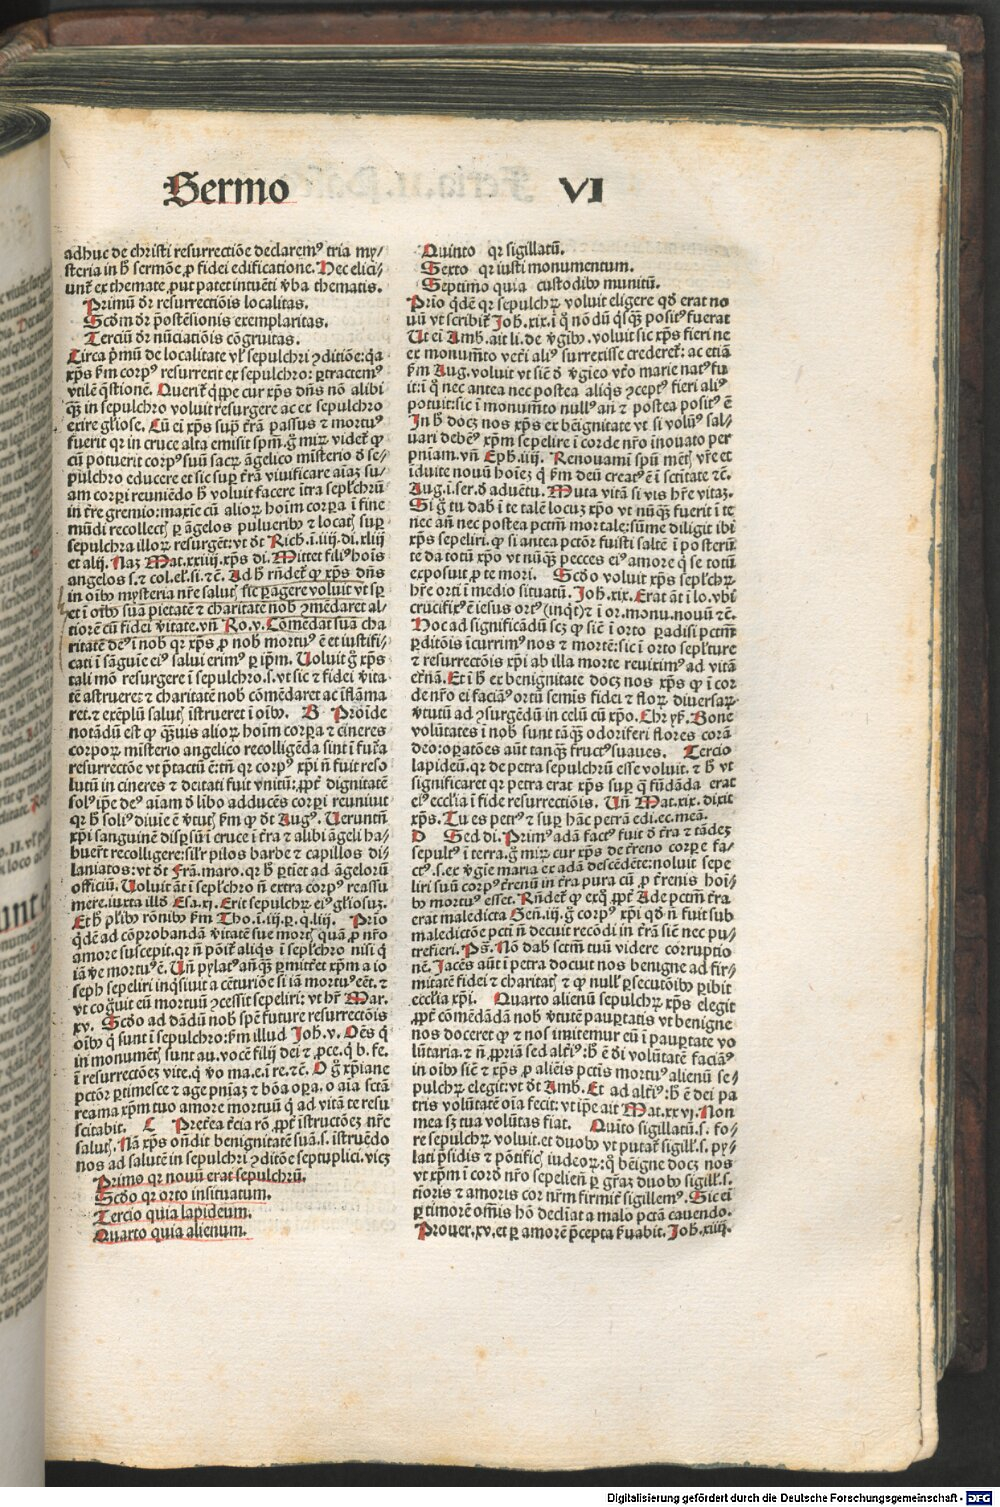 Sermo VI
adhuc de christi resurrectiōe declarem⁹ tria my⸗
steria in h̄ sermōe ꝓ fidei edificatione. Hec elici⸗
unt᷑ ex themate ꝓut patet intuēti v̄ba thematis.
Primū dr̄ resurrectiōis localitas.
Scd̄m dr̄ p̄ostēsionis exemplaritas.
Terciū dr̄ nūciatiōis cōgruitas.
Circa p̄mū de localitate vl᷑ sepulchri ↄditiōe: q̄a
xp̄s km̄ corp⁹ resurrexit ex sepulchro: ꝑtractem⁹
vtilē q̄stionē. Querit᷑ q̄ꝓpe cur xp̄s dn̄s nō alibi
qꝫ̄ in sepulchro voluit resurgere ac ex sepulchro
exire gl̄iose. Cū ei xp̄s suꝑ t̄rā passus ⁊ mortu⁹
fuerit qr in cruce alta emisit spm̄. g̊ miꝝ videt᷑ ꝙ
cū potuerit corp⁹ suū sacꝝ āgelico mīsterio d̄ se⸗
pulchro educere et sic suꝑ t̄rā viuificare aīaꝫ su⸗
am corꝑi reuniēdo h̄ voluit facere īt̄ra sepl̄chrū
in t̄re gremio: maxīe cū alioꝝ hoīm corꝑa ī fine
mūdi recollectꝫ ꝑ āgelos puluerib⁹ ⁊ locatꝫ suꝑ
sepulchra illoꝝ resurgēt: vt dt̄ Rich. ī. iiii. di. xliij
et alij. Naꝫ Mat. xxiiij. xp̄s di. Mittet fili⁹ hoīs
angelos s. ⁊ col. el᷑. si. ⁊ē. Ad h̄ rn̄det᷑ ꝙ xp̄s dn̄s
in oīb⁹ mysteria nr̄e salutꝫ sic ꝑagere voluit vt sꝑ
et ī oīb⁹ suā pietatē ⁊ charitatē nob̄ ↄmēdaret al⸗
tiorē cū fidei v̄itate. vn̄ Ro. v. Cōmēdat suā cha
ritatē de⁹ ī nob̄ qr xp̄s ꝓ nob̄ mortu⁹ ē et iustifi⸗
cati ī sāguīe ei⁹ salui erim⁹ ꝑ ip̄m. Uoluit g̊ xp̄s
tali mō resurgere ī sepulchro. s. vt sic ⁊ fidei v̄ita
tē astrueret ⁊ charitatē nob̄ cōmēdaret ac īflāma
ret. ⁊ exēplū salutꝫ īstrueret ī oīb⁹. B Proīde
notādū est ꝙ qꝫuis alioꝝ hoīm corꝑa ⁊ cineres
corpoꝝ mīsterio angelico recolligēda sint ī fut̄a
resurrectōe vt p̄tactū ē: tn̄ qr corp⁹ xp̄i n̄ fuit reso
lutū in cineres ⁊ deitati fuit vnitū: ꝓpt᷑ dignitatē
sol⁹ ip̄e de⁹ aīam d̄ lībo adducēs corꝑi reuniuit
qr h̄ soli⁹ diuīe ē v̄tutꝫ km̄ ꝙ dt̄ Aug⁹. Ueruntn̄
xp̄i sanguinē disꝑsū ī cruce ī t̄ra ⁊ alibi āgeli ha⸗
buer̄t recolligere: sil̄r pilos barbe ⁊ capillos di⸗
laniatos: vt dt̄ Frā. maro. qr h̄ ꝑtiet ad āgelorū
officiū. Uoluit āt ī sepl̄chro n̄ extra corp⁹ reassu
mere. iuxta illd̄ Esa. xj. Erit sepulchꝝ ei⁹ gl̄iosuꝫ.
Et h̄ pl̄ib⁹ rōnib⁹ km̄ Tho. ī. iii. ꝑ. q. liij. Prīo
q̄dē ad cōprobandā v̄itatē sue mortꝫ quā ꝓ nr̄o
amore suscepit. qr n̄ pōit᷑ aliqs ī sepl̄chro nisi q̄
iā ve mortu⁹ ē. Un̄ pylat⁹ an̄qꝫ ꝑmitt̄et xp̄m a io
seph sepeliri inq̄siuit a cēturiōe si iā mortu⁹ eēt. ⁊
vt cog̊uit eū mortuū ↄcessit sepeliri: vt hr̄ Mar.
xv. Scd̄o ad dādū nob̄ spē future resurrectiōis
oīb⁹ q̄ sunt ī sepulchro: km̄ illud Joh. v. Oēs q̄
in monumētꝫ sunt au. vocē filij dei ⁊ ꝓce. q̄ b. fe.
ī resurrectōeꝫ vite. q̄ vo ma. e. ī re. ⁊ē. O g̊ xp̄iane
pctōr ꝑtimesce ⁊ age pn̄iaꝫ ⁊ bōa oꝑa. o aīa sctā
reama xp̄m tuo amore mortuū q̄ ad vitā te resu
scitabit. C Pret̄ea t̄cia rō ꝓpt᷑ īstructōeꝫ nr̄e
salutꝫ. Nā xp̄s on̄dit benignitatē suā. s. īstruēdo
nos ad salutē in sepulchri ↄditōe septuplici. vicꝫ
Primo qr nouū erat sepulchrū.
Scd̄o qr orto insituatum.
Tercio quia lapideum.
Quarto quia alienum.
Quinto qr sigillatū.
Sexto qr iusti monumentum.
Septimo quia custodib⁹ munitū.
Prīo q̄dē qr sepulchꝝ voluit eligere qd̄ erat no
uū vt scribit᷑ Joh. xix. ī q̄ nōdū qsqꝫ posit⁹ fuerat
Ut ei Amb. ait li. de v̄gib⁹. voluit sic xp̄s fieri ne
ex monumēto vet̄i ali⁹ surrexisse crederet᷑: ac etiā
km̄ Aug. voluit vt sic d̄ v̄gīeo vt̄o marie nat⁹ fu
it: ī q̄ nec antea nec postea aliqs ↄcept⁹ fieri ali⁹
potuit: sic ī monumēto null⁹ an̄ ⁊ postea posit⁹ ē
In h̄ docꝫ nos xp̄s ex bēignitate vt si volum⁹ sal⸗
uari debem⁹ xp̄m sepelire ī corde nr̄o inouato per
pniam. vn̄ Eph. iiij. Renouami spū mētꝫ vr̄e et
īduite nouū hoīeꝫ q̄ km̄ deū creat⁹ ē ī sctitate ⁊ē.
Aug. ī. ser. d̄ aduētu. Muta vitā si vis hr̄e vitaꝫ.
Si g̊ tu dab̄ ī te talē locuꝫ xp̄o vt nūqꝫ fuerit ī te
nec an̄ nec postea pctm̄ mortale: sūme diligit ibi
xp̄s sepeliri. ꝙ si antea pctōr fuisti saltē ī posterū
te da totū xp̄o vt nūqꝫ pecces ei⁹ amore q̄ se totū
exposuit ꝓ te mori. Scd̄o voluit xp̄s sepl̄chꝝ
hr̄e orti ī medio situatū. Joh. xix. Erat āt ī lo. vbi
crucifix⁹ ē iesus ort⁹ (inqt) ⁊ ī or. monu. nouū ⁊ē.
Hoc ad significādū scꝫ ꝙ sic̄ ī orto ꝑadisi pctm̄
ꝑditōis īcurrim⁹ nos ⁊ mortē: sic ī orto sepl̄ture
⁊ resurrectōis xp̄i ab illa morte reuixim⁹ ad vitā
et̄nā. Et ī h̄ ex benignitate docꝫ nos xp̄s ꝙ ī cor
de nr̄o ei faciam⁹ ortū semis fidei ⁊ floꝝ diuersaꝝ
v̄tutū ad ↄsurgēdū in celū cū xp̄o. Chr̄ys. Bone
volūtates ī nob̄ sunt tāqꝫ odoriferi flores corā
deo: oꝑatōes aūt tanqꝫ fruct⁹ suaues. Tercio
lapideū. qr de petra sepulchrū esse voluit. ⁊ h̄ vt
significaret qr petra erat xp̄s suꝑ q̄ fūdāda erat
ei⁹ eccl̄ia ī fide resurrectiōis. Un̄ Mat. xix. dixit
xp̄s. Tu es petr⁹ ⁊ suꝑ hāc petrā edi. ec. mea.
D Sed di. Prim⁹ adā fact⁹ fuit d̄ t̄ra ⁊ tādeꝫ
sepult⁹ ī terra. g̊ miꝝ cur xp̄s de t̄reno corꝑe fa⸗
ct⁹. s. ex v̄gīe maria ex adā descēdēte: noluit sepe
liri suū corp⁹ t̄renū in t̄ra pura cū ꝓ t̄renis hoī⸗
b⁹ mortu⁹ esset. Rn̄det᷑ ꝙ exq̄ ꝓpt᷑ Ade pctm̄ t̄ra
erat maledicta Gen̄. iij. g̊ corp⁹ xp̄i qd̄ n̄ fuit sub
maledictōe pcti n̄ decuit recōdi in t̄rā sic̄ nec pu⸗
trefieri. Ps̄. Nō dab̄ sctm̄ tuū videre corruptio
nē. Jacēs aūt ī petra docuit nos benigne ad fir⸗
mitatē fidei ⁊ charitatꝫ ⁊ ꝙ null⁹ ꝑsecutōib⁹ ꝑibit
eccl̄ia xp̄i. Quarto alienū sepulchꝝ xp̄s elegit
ꝓpt᷑ cōmēdādā nob̄ v̄tutē pauꝑtatis vt benigne
nos doceret ꝙ ⁊ nos imitemur eū ī pauꝑtate vo
lūtaria. ⁊ n̄ ꝓpriā sed alt̄i⁹: h̄ ē dī volūtatē faciam⁹
in oīb⁹ sic̄ ⁊ xp̄s ꝓ alieīs pctīs mortu⁹ alienū se⸗
pulchꝝ elegit: vt dt̄ Amb. Et ad alt̄i⁹: h̄ ē dei pa
tris volūtatē oīa fecit: vt ip̄e ait Mat. xxvj. Non
mea sꝫ tua volūtas fiat. Quīto sigillatū. s. fo⸗
re sepulchꝝ voluit. et duob⁹ vt putat᷑ sigill̄. s. py⸗
lati p̄sidis ⁊ pōtificꝫ iudeoꝝ: q̄ bēigne docꝫ nos
vt xp̄m ī cord̄ nr̄o sepelien̄ ꝑ gr̄aꝫ duob⁹ sigill̄. s.
tīoris ⁊ amoris cor nr̄m firmit᷑ sigillem⁹. Sic ei
ꝑ timorē oīnis hō declīat a malo pctā cauendo.
Prouer. xv. et ꝑ amorē p̄cepta s̄uabit. Joh. xiiij.
Digitalisierung gefördert durch die Deutsche Forschungsgemeinschaft - DFG